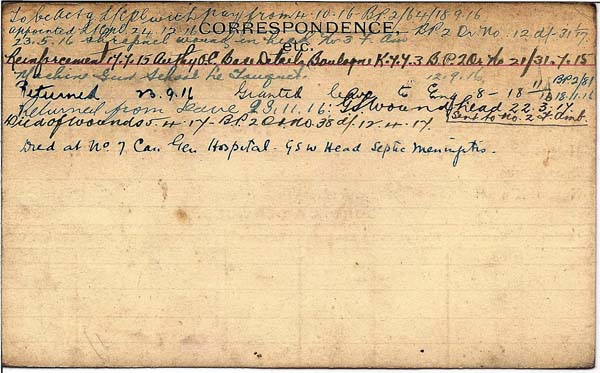 To be Act'g L/Cpl with pay from 4.10.16 BP2/64/18.9.16
appointed 24.12.16 BP.2 Dr. No. 12 df 31
23.5.16 shrapnel wound in head No 3 F. Am
CORRESPONDENCE,
etc.
Reinforcement 17.7.15 Auth OC Base Details Boulogne K.Y.Y.3 BP.2 Dr. No 21/31.7.15
Machine Gun School Le Touquet. 12.9.16
Returned 23.9.16 Granted leave to Eng 8-18 - 11 BP2/81 18.11.16
Returned from leave 23.11.16: GS Wound head 22.3.17.
Sent to No. 2 F. Amb.
Died of Wounds 5.4.17. BP.2 No. 38 df. 12.4.17
Died at No 7 Can Gen Hospital. GSW Head Septic Meningitis.